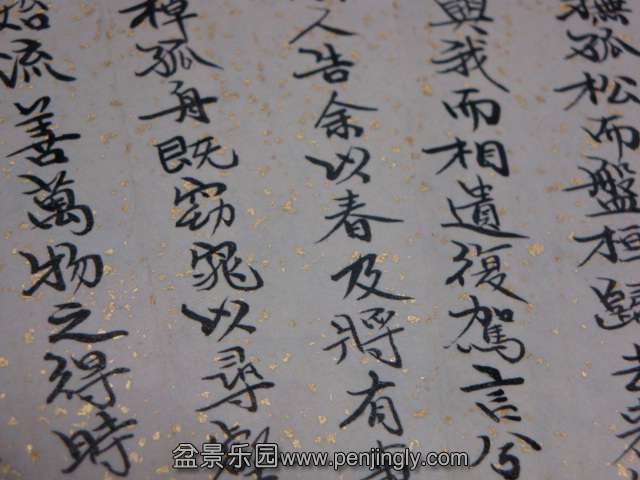 撫孤松而盤桓歸去來
與我而相遺復駕言兮
人告余以春及將有事
棹孤舟既窈窕以尋壑
始流善萬物之得時
盆景乐园www.penjingly.com